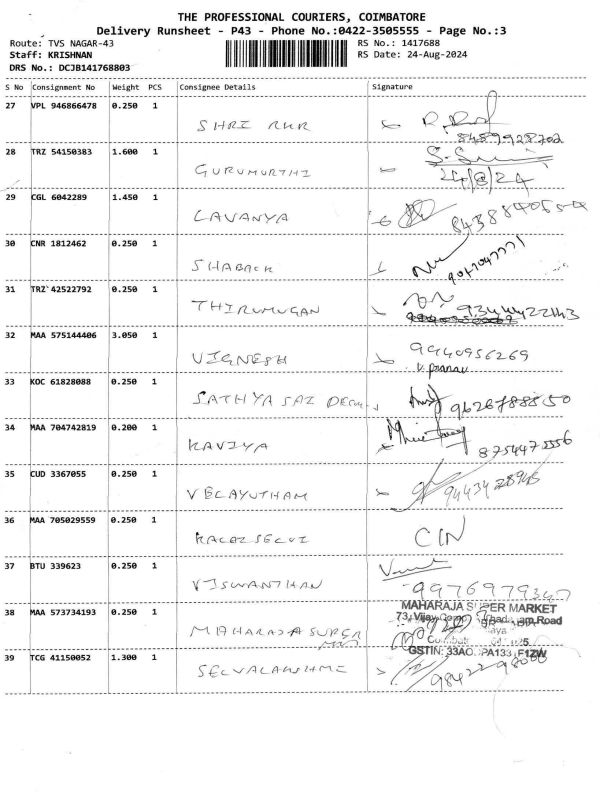 THE PROFESSIONAL COURIERS, COIMBATORE
Delivery Runsheet - P43 - Phone No.:0422-3505555 - Page No.:3
Route: TVS NAGAR-43 RS No.: 1417688
Staff: KRISHNAN RS Date: 24-Aug-2024
DRS No.: DCJB141768803
S No Consignment No Weight PCS Consignee Details Signature
27 VPL 946866478 0.250 1
SHRI RKR
8489928702
28 TRZ 54150383 1.600 1
GURUMURTHI
24/8/24
29 CGL 6042289 1.450 1
LAVANYA
30 CNR 1812462 0.250 1
SHABACK
31 TRZ 42522792 0.250 1
THIRUMUGAN
9344422143
32 MAA 575144406 3.050 1
VIGNESH
9940956269
V. Pranav
33 KOC 61828088 0.250 1
SATHYA SAI
9626788850
34 MAA 704742819 0.200 1
KAVIYA
8754475556
35 CUD 3367055 0.250 1
VELAYUTHAM
9443428945
36 MAA 705029559 0.250 1
KALAISELVI
CIN
37 BTU 339623 0.250 1
VISWANTHAN
9976979347
38 MAA 573734193 0.250 1
MAHARAJA SUPER
MAHARAJA SUPER MARKET
73, Vijay
Road
GSTIN: 33AO
39 TCG 41150052 1.300 1
SELVALAKSHMI